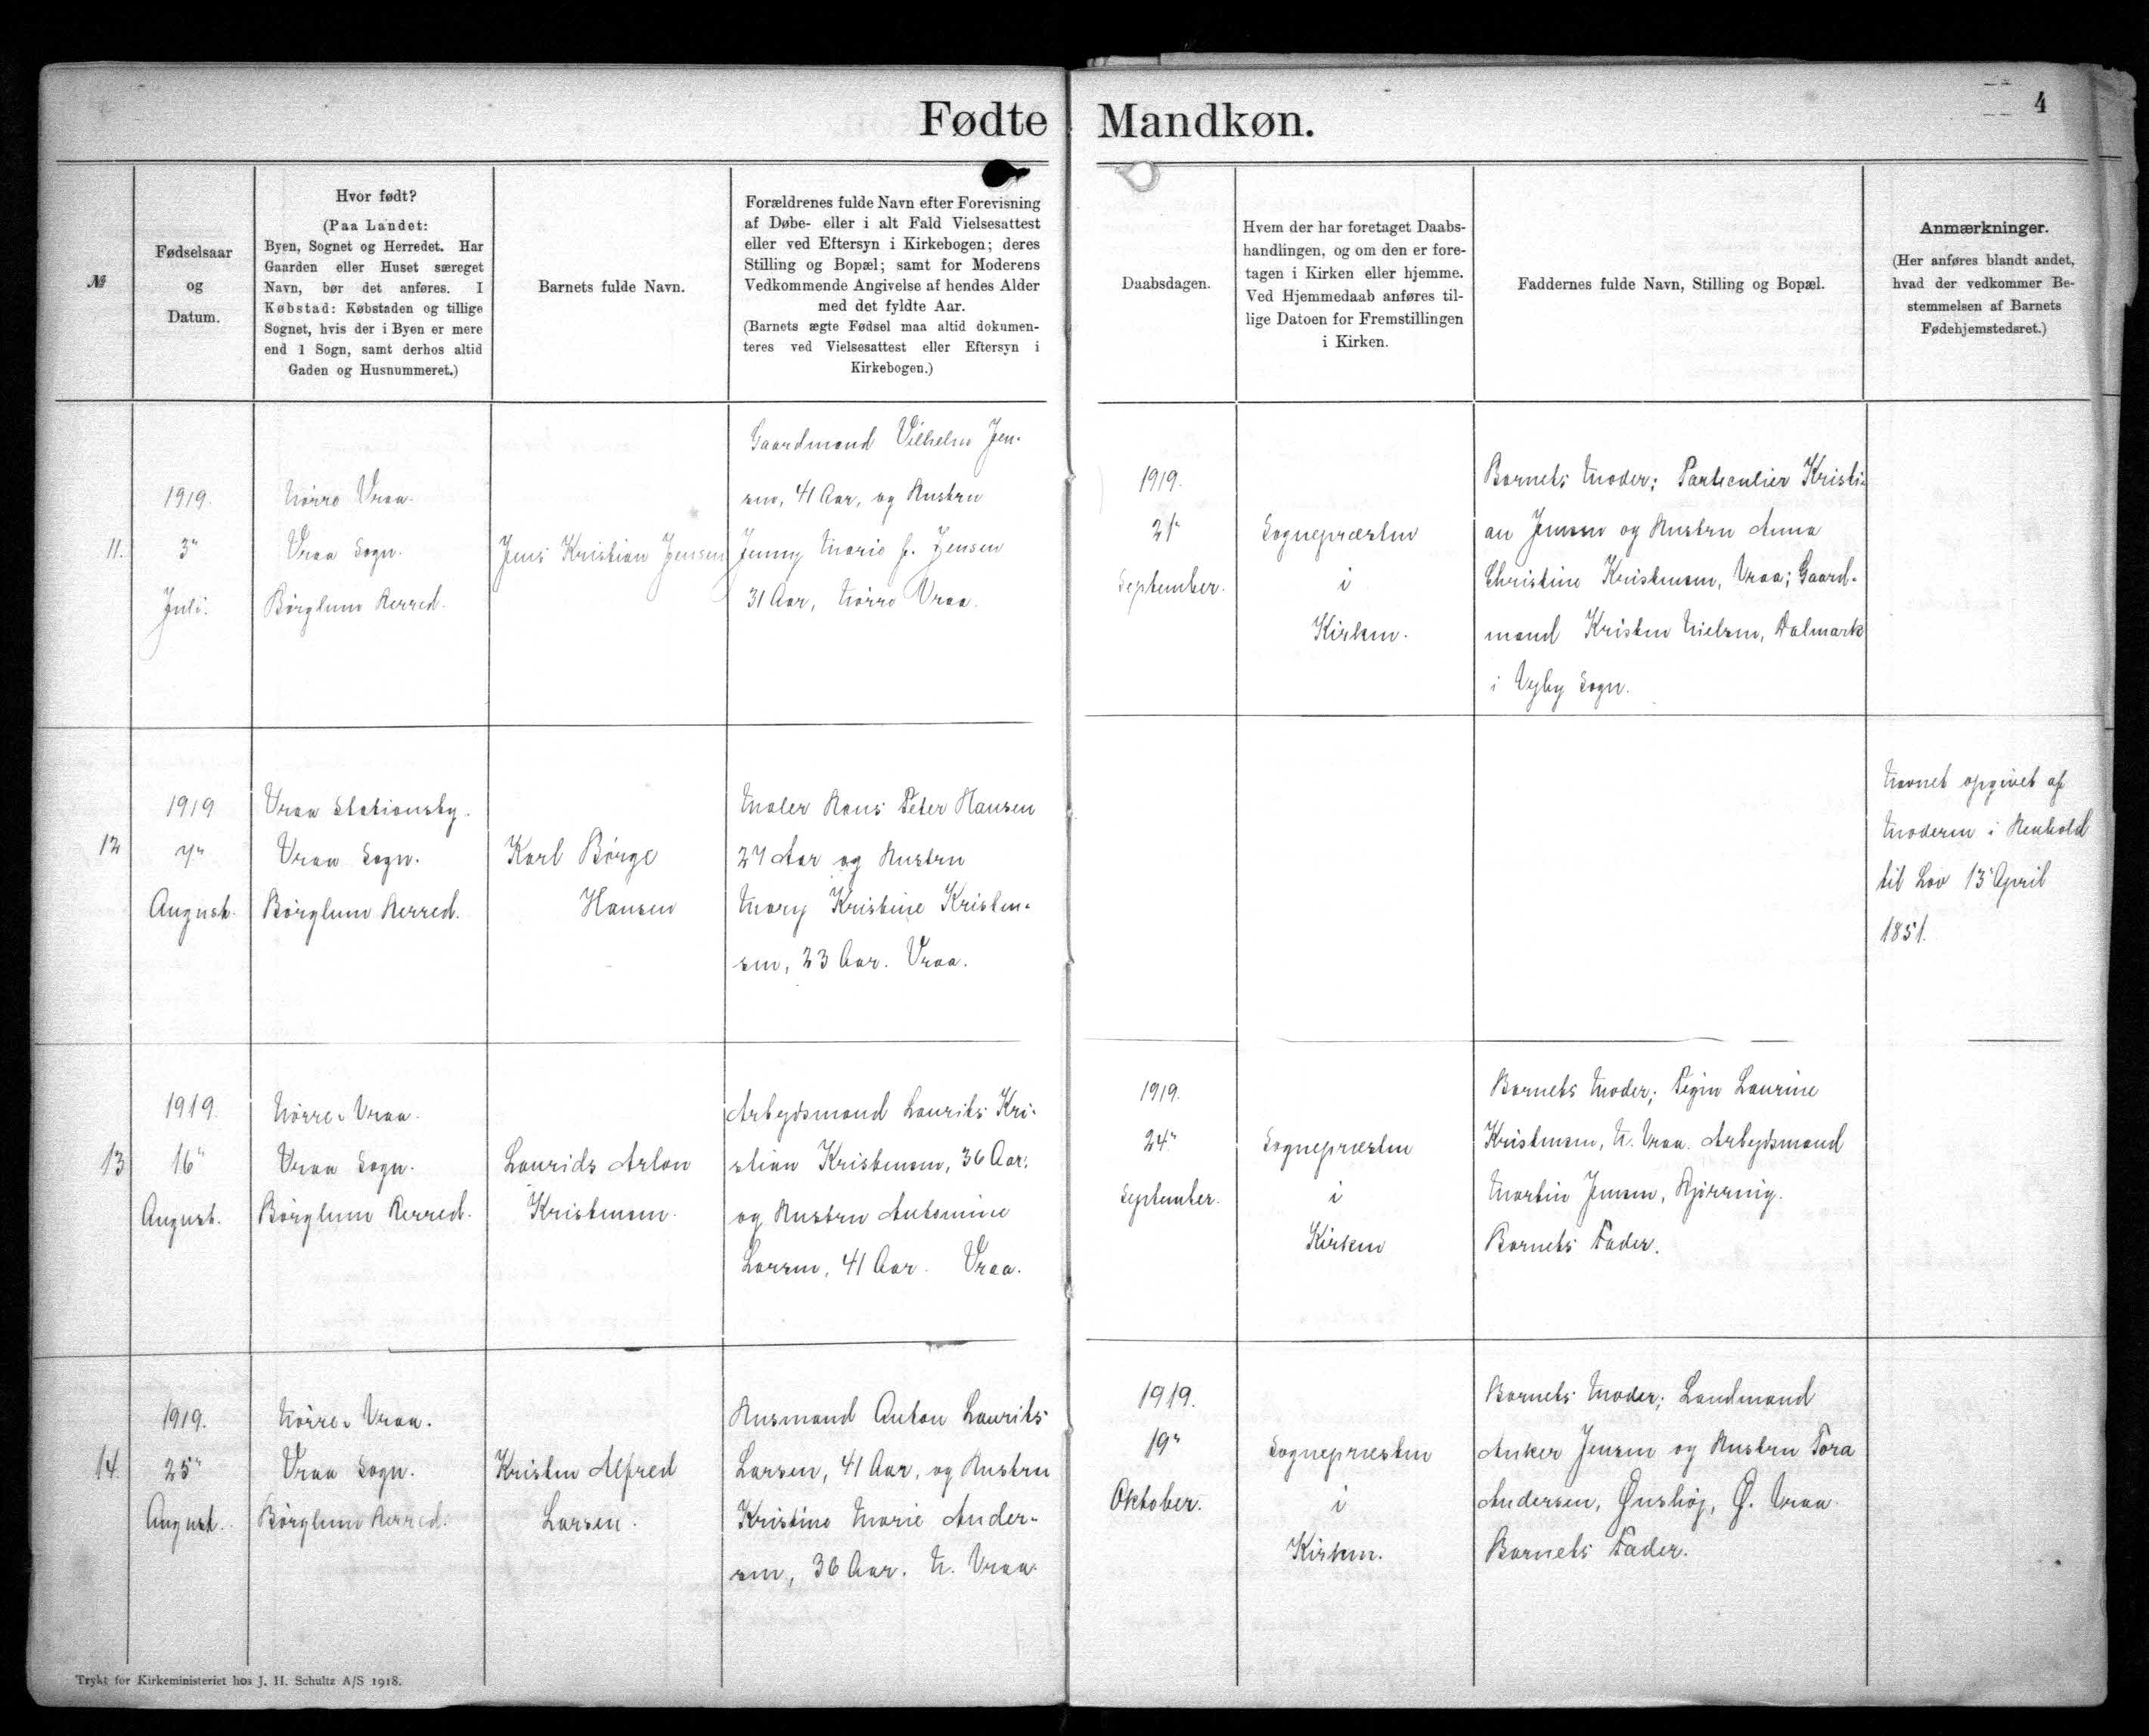 Fødte Mandkøn.
4
№
Fødselsaar
og
Datum.
Hvor født?
(Paa Landet:
Byen, Sognet og Herredet. Har
Gaarden eller Huset særeget
Navn, bør det anføres. I
Købstad: Købstaden og tillige
Sognet, hvis der i Byen er mere
end 1 Sogn, samt derhos altid
Gaden og Husnummeret.)
Barnets fulde Navn.
Forældrenes fulde Navn efter Forevisning
af Døbe- eller i alt Fald Vielsesattest
eller ved Eftersyn i Kirkebogen; deres
Stilling og Bopæl; samt for Moderens
Vedkommende Angivelse af hendes Alder
med det fyldte Aar.
(Barnets ægte Fødsel maa altid dokumen-
teres ved Vielsesattest eller Eftersyn i
Kirkebogen.)
Daabsdagen.
Hvem der har foretaget Daabs-
handlingen, og om den er fore-
tagen i Kirken eller hjemme.
Ved Hjemmedaab anføres til-
lige Datoen for Fremstillingen
i Kirken.
Faddernes fulde Navn, Stilling og Bopæl.
Anmærkninger.
(Her anføres blandt andet,
hvad der vedkommer Be-
stemmelsen af Barnets
Fødehjemstedsret.)
11.
1919.
3"
Juli.
Nørre Vraa.
Vraa Sogn.
Børglum Herred.
Jens Kristian Jensen
Gaardmand Vilhelm Jen-
sen, 41 Aar, og Hustru
Jenny Marie f. Jensen
31 Aar, Nørre Vraa.
1919.
21"
September.
Sognepræsten
i
Kirken.
Barnets Moder; Particulier Kristi-
an Jensen og Hustru Anna
Christine Kristensen, Vraa; Gaard-
mand Kristen Nielsen, Dalmark
i Vejby Sogn.
12
1919
7"
August.
Vraa Stationsby.
Vraa Sogn.
Børglum Herred.
Karl Børge
Hansen
Maler Hans Peter Hansen
27 Aar og Hustru
Mary Kristine Kristen-
sen, 23 Aar. Vraa.
Navnet opgivet af
Moderen i Henhold
til Lov 13" April
1851.
13
1919.
16"
August.
Nørre-Vraa.
Vraa Sogn.
Børglum Herred.
Laurids Arlon
Kristensen.
Arbejdsmand Laurits Kri-
stian Kristensen, 36 Aar,
og Hustru Antomine
Larsen, 41 Aar. Vraa.
1919.
24"
September.
Sognepræsten
i
Kirken
Barnets Moder; Pigen Laurine
Kristensen, N. Vraa. Arbejdsmand
Martin Jensen, Hjørring.
Barnets Fader.
14.
1919.
25"
August.
Nørre-Vraa.
Vraa Sogn.
Børglum Herred.
Kristen Alfred
Larsen.
Husmand Anton Laurits
Larsen, 41 Aar, og Hustru
Kristine Marie Ander-
sen, 36 Aar. N. Vraa.
1919.
19"
Oktober.
Sognepræsten
i
Kirken.
Barnets Moder; Landmand
Anker Jensen og Hustru Tora
Andersen, Ønshøj, Ø. Vraa.
Barnets Fader.
Trykt for Kirkeministeriet hos J. H. Schultz A/S 1918.